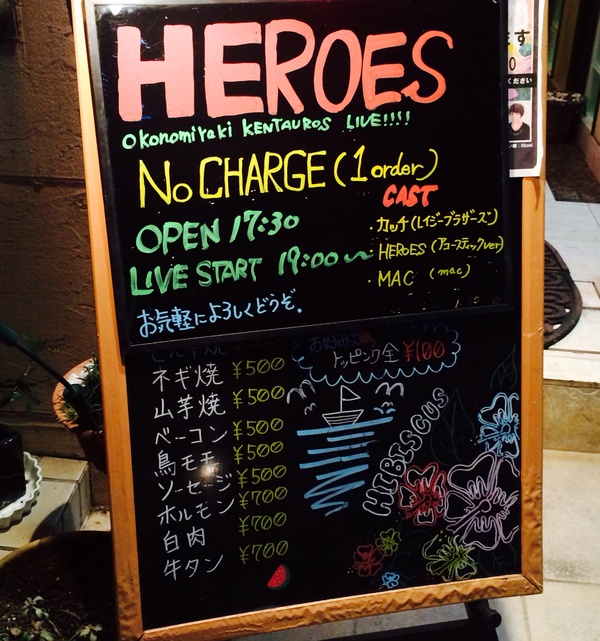 HEROES
Okonomiyaki KENTAUROS LIVE!!!!
No CHARGE (1 order)
CAST
OPEN 17:30
・カッチ(レイジーブラザーズ)
LIVE START 19:00〜
・HEROES (アコースティックver)
・MAC (mac)
お気軽によろしくどうぞ。
トッピング全¥100
ネギ焼 ¥500
山芋焼 ¥500
ベーコン ¥500
鳥モモ ¥500
ソーセージ ¥500
ホルモン ¥700
白肉 ¥700
牛タン ¥700
HIBISCUS
ください